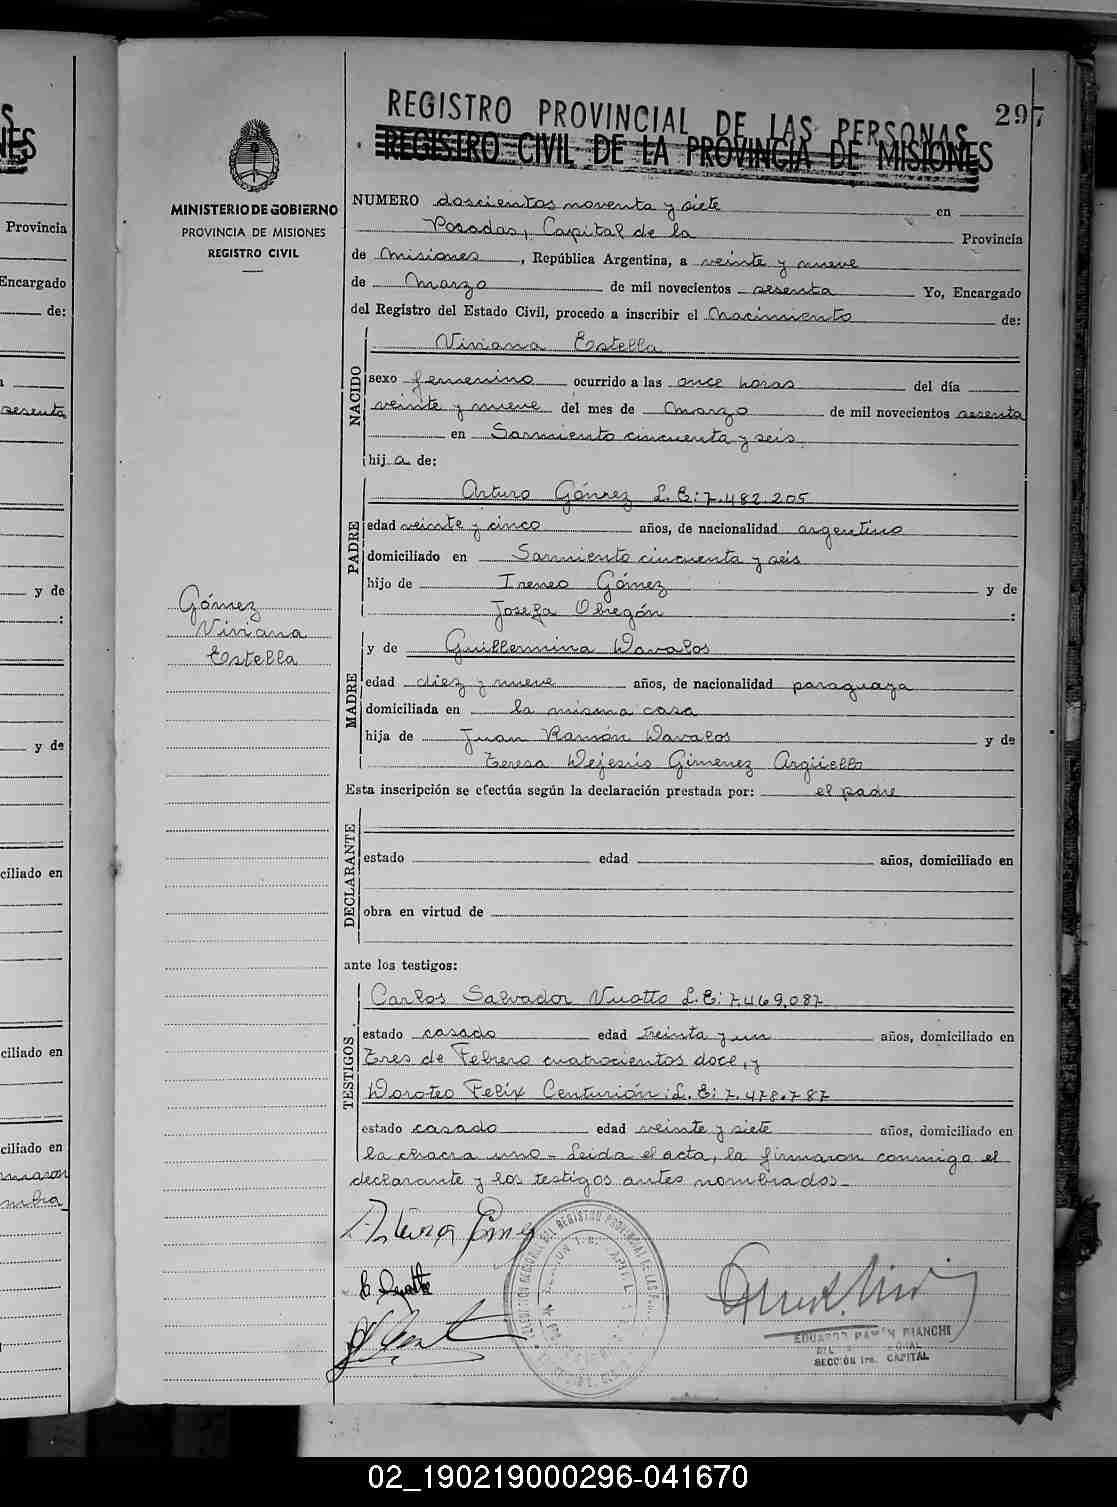 297
REGISTRO PROVINCIAL DE LAS PERSONAS
REGISTRO CIVIL DE LA PROVINCIA DE MISIONES
MINISTERIO DE GOBIERNO
PROVINCIA DE MISIONES
REGISTRO CIVIL
Gómez
Viviana
Estella
NUMERO doscientos noventa y siete en
Posadas, Capital de la Provincia
de Misiones, República Argentina, a veinte y nueve
de Marzo de mil novecientos sesenta Yo, Encargado
del Registro del Estado Civil, procedo a inscribir el Nacimiento de:
NACIDO
Viviana Estella
sexo femenino ocurrido a las once horas del día
veinte y nueve del mes de Marzo de mil novecientos sesenta
en Sarmiento cincuenta y seis
hij a de:
PADRE
Arturo Gómez L.E: 7.482.205
edad veinte y cinco años, de nacionalidad argentino
domiciliado en Sarmiento cincuenta y seis
hijo de Ireneo Gómez y de
Josefa Obregón :
MADRE
y de Guillermina Davalos
edad diez y nueve años, de nacionalidad paraguaya
domiciliada en la misma casa
hija de Juan Ramón Davalos y de
Teresa Dejesús Gimenez Argüello
Esta inscripción se efectúa según la declaración prestada por: el padre
DECLARANTE
estado edad años, domiciliado en
obra en virtud de
ante los testigos:
TESTIGOS
Carlos Salvador Vuotto L.E: 7.469.087
estado casado edad treinta y un años, domiciliado en
Tres de Febrero cuatrocientos doce, y
Doroteo Felix Centurión: L.E: 7.478.787
estado casado edad veinte y siete años, domiciliado en
la chacra uno - Leida el acta, la firmaron conmigo el
declarante y los testigos antes nombrados -
EDUARDO RAMÓN BIANCHI
SECCIÓN 1ra. CAPITAL
S
NES
Provincia
Encargado
de:
sesenta
y de
:
y de
ciliado en
ciliado en
ciliado en
02_190219000296-041670